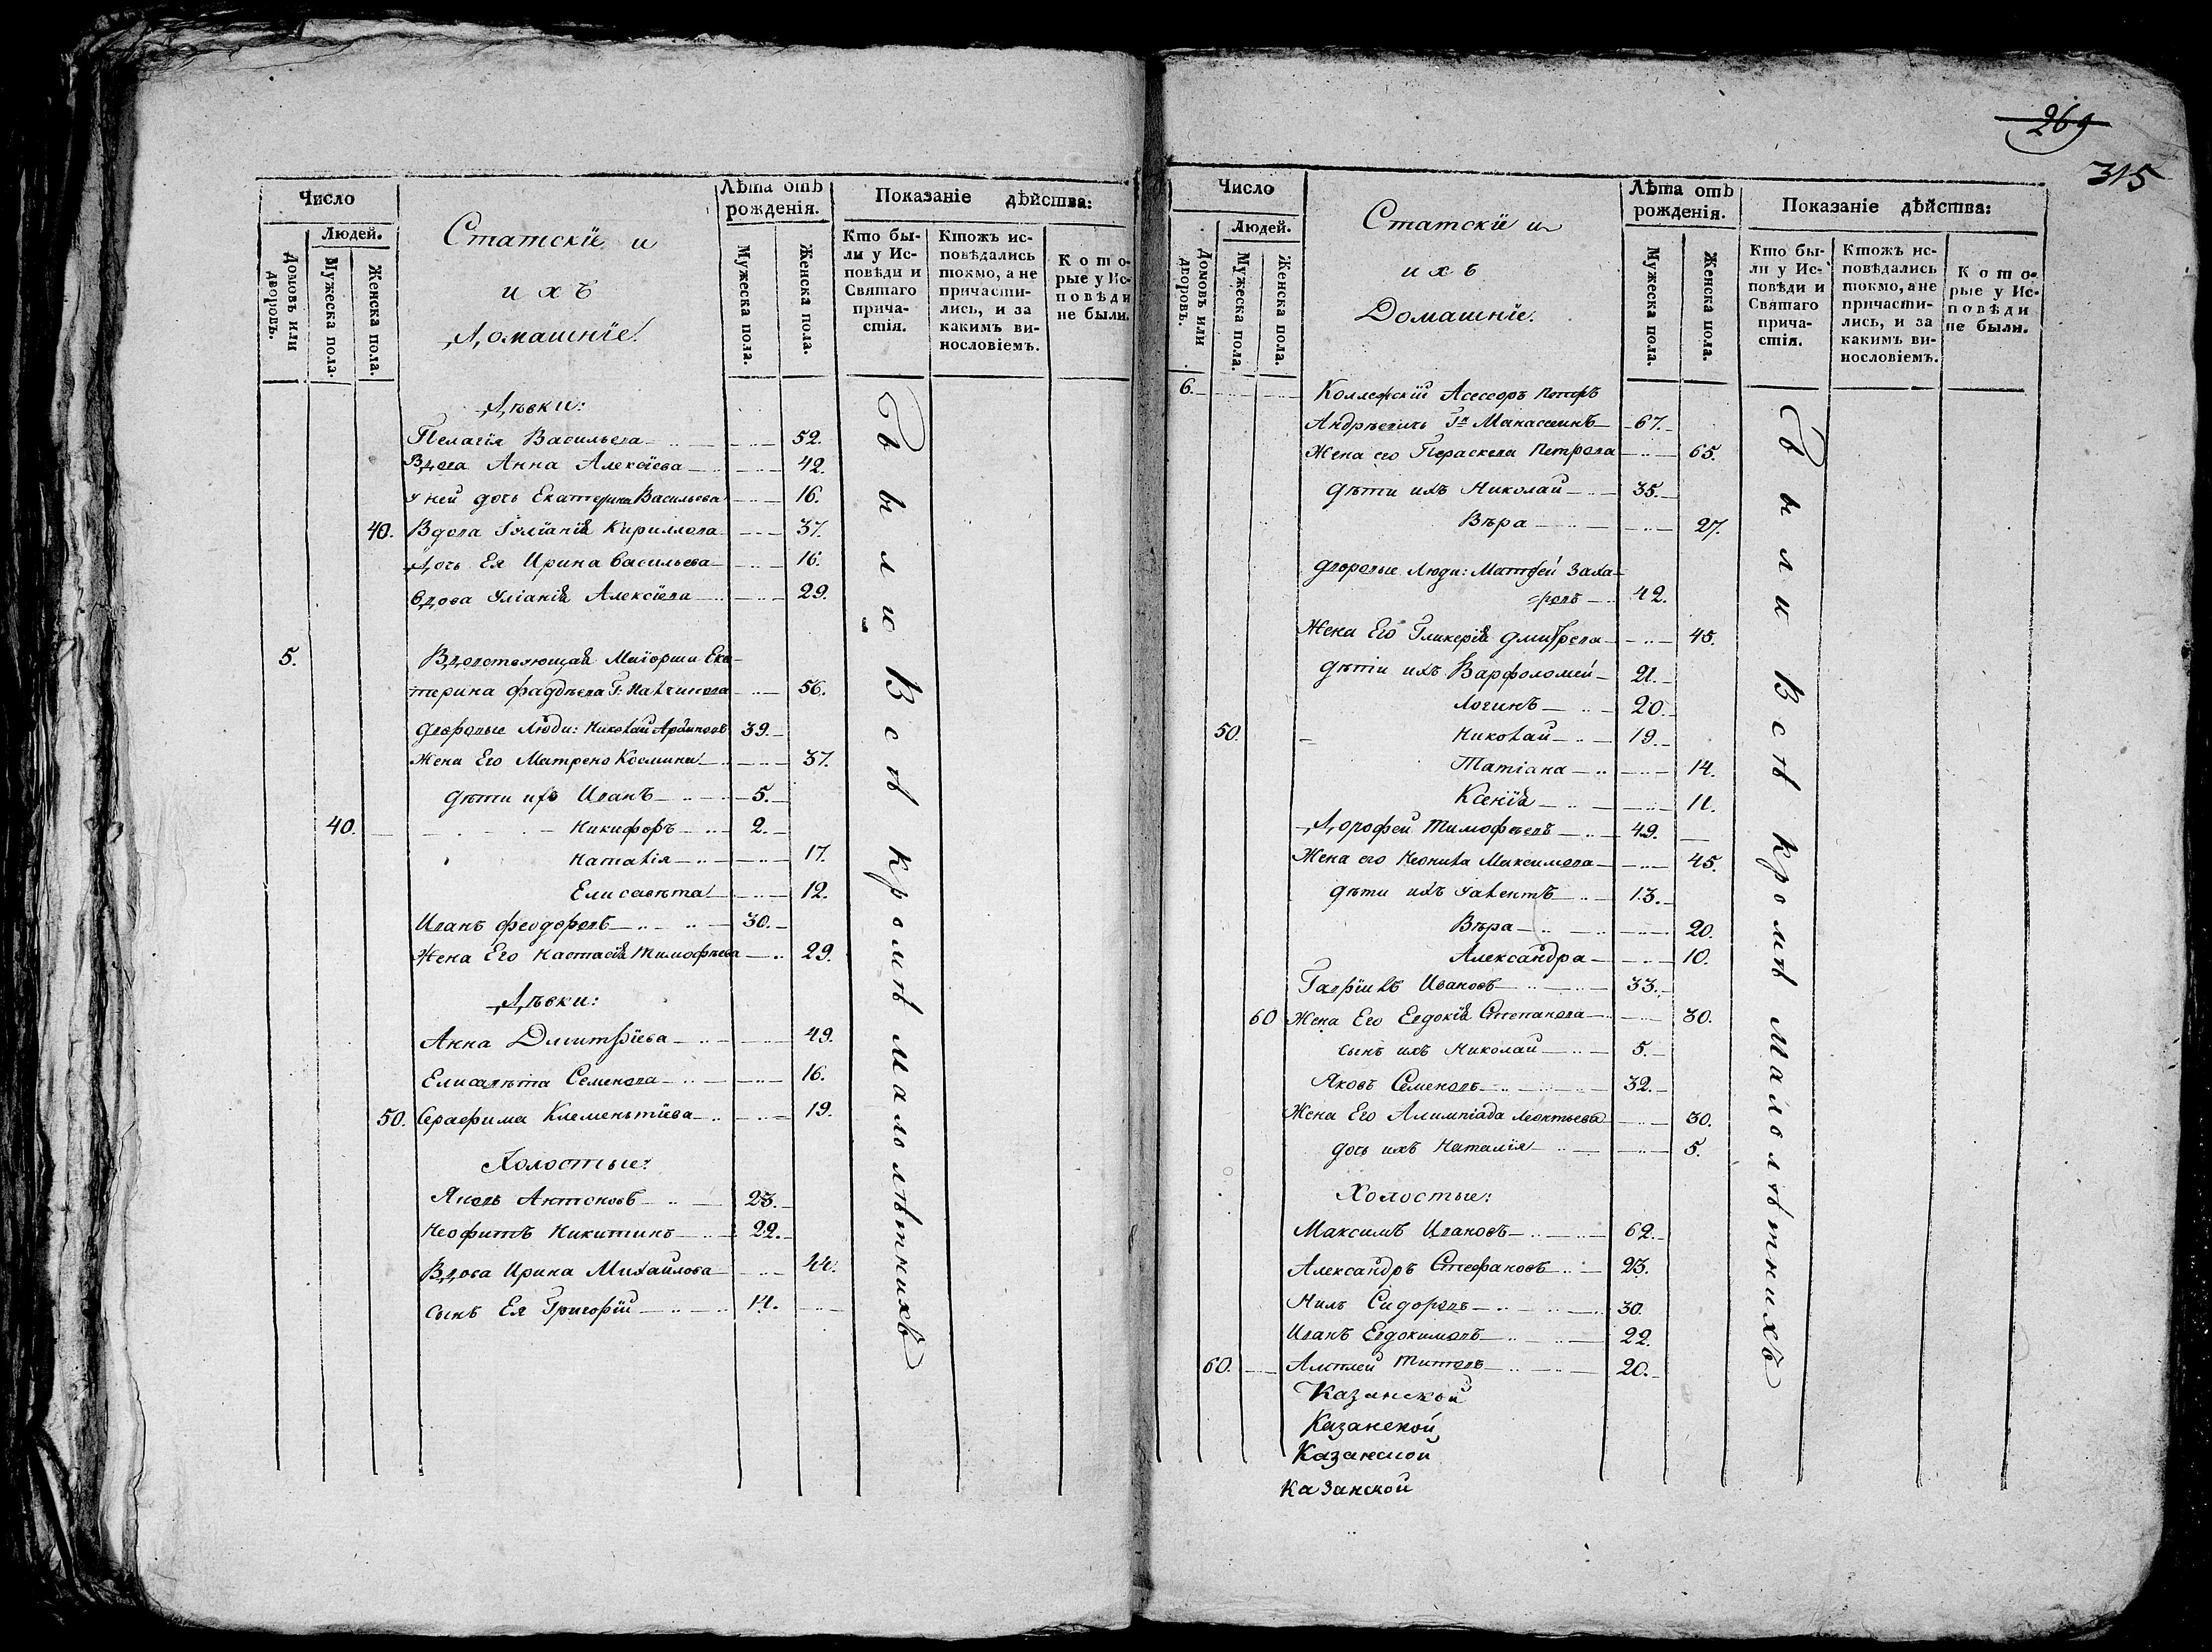 Число
Людей.
Домовъ или дворовъ.
Мужеска пола.
Женска пола.
Статскіе и
ихъ
Домашніе.
Лѣта отъ рожденія.
Мужеска пола.
Женска пола.
Показаніе дѣйства:
Кто бы-
ли у Ис-
повѣди и
Святаго
прича-
стія.
Ктожъ ис-
повѣдались
токмо, а не
причасти-
лись, и за
какимъ ви-
нословіемъ.
Кото-
рые у Ис-
повѣди
не были.
Дѣвки:
Пелагія Васильева 52.
Вдова Анна Алексіева 42.
у ней дочь Екатерина Васильева 16.
40. Вдова Іуліанія Кириллова 37.
Дочь Ея Ирина Васильева 16.
Вдова Уліанія Алексіева 29.
5. Вдовствующая Маіорша Ека-
терина Фадѣева Г:
56.
Дворовые Люди: Николай 39.
Жена Его Матрена Космина 37.
Дѣти ихъ Иванъ 5.
40. Никифоръ 2.
Наталія 17.
Елисавѣта 12.
Иванъ Феодоровъ 30.
Жена Его Настасія Тимофѣева 29.
Дѣвки:
Анна Дмитріева 49.
Елисавѣта Семенова 16.
50. Серафима Клементіева 19.
Холостые:
Яковъ Антоновъ 23.
Неофитъ Никитинъ 22.
Вдова Ирина Михайлова 44.
Сынъ Ея Григорій 14.
Были Всѣ кромѣ малолѣтнихъ
269
315
Число
Людей.
Домовъ или дворовъ.
Мужеска пола.
Женска пола.
Статскіе и
ихъ
Домашніе.
Лѣта отъ рожденія.
Мужеска пола.
Женска пола.
Показаніе дѣйства:
Кто бы-
ли у Ис-
повѣди и
Святаго
прича-
стія.
Ктожъ ис-
повѣдались
токмо, а не
причасти-
лись, и за
какимъ ви-
нословіемъ.
Кото-
рые у Ис-
повѣди
не были.
6. Коллежскій Асессоръ Петръ
Андрѣевичь Гнъ Манассеинъ 67.
Жена его Параскева Петрова 65.
Дѣти ихъ Николай 35.
Вѣра 27.
Дворовые Люди: Матфей Заха-
=ровъ 42.
Жена Его Гликерія Дмитрева 45.
Дѣти ихъ Варфоломей 21.
Логинъ 20.
50. Николай 19.
Татіана 14.
Ксенія 11.
Дорофей Тимофѣевъ 49.
Жена его Неонила Максимова 45.
Дѣти ихъ Уалентъ 13.
Вѣра 20.
Александра 10.
Гавріилъ Ивановъ 33.
60 Жена Его Евдокія Степанова 30.
Сынъ ихъ Николай 5.
Яковъ Семеновъ 32.
Жена Его Алимпіада Леонтьева 30.
Дочь ихъ Наталія 5.
Холостые:
Максимъ Ивановъ 62.
Александръ Стефановъ 23.
Нилъ Сидоровъ 30.
Иванъ Евдокимовъ 22.
60. Титовъ 20.
Казанской
Казанской
Казанской
Казанской
Были Всѣ кромѣ Малолѣтнихъ